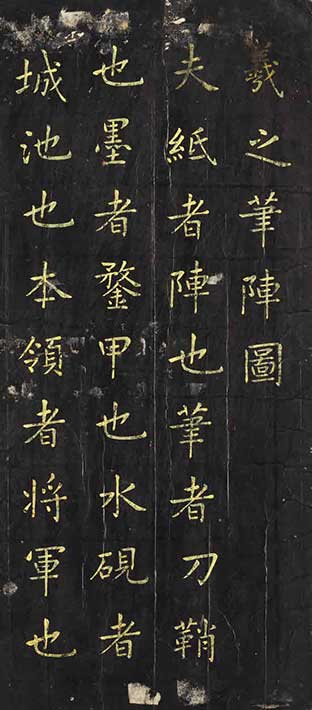 羲之筆陣圖
夫紙者陣也筆者刀鞘
也墨者鍪甲也水硯者
城池也本領者將軍也